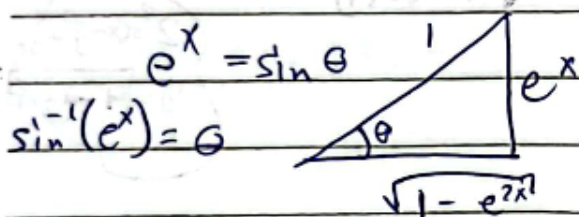 e^x = sin θ
sin⁻¹(e^x) = θ
1
e^x
θ
√(1 - e^{2x})